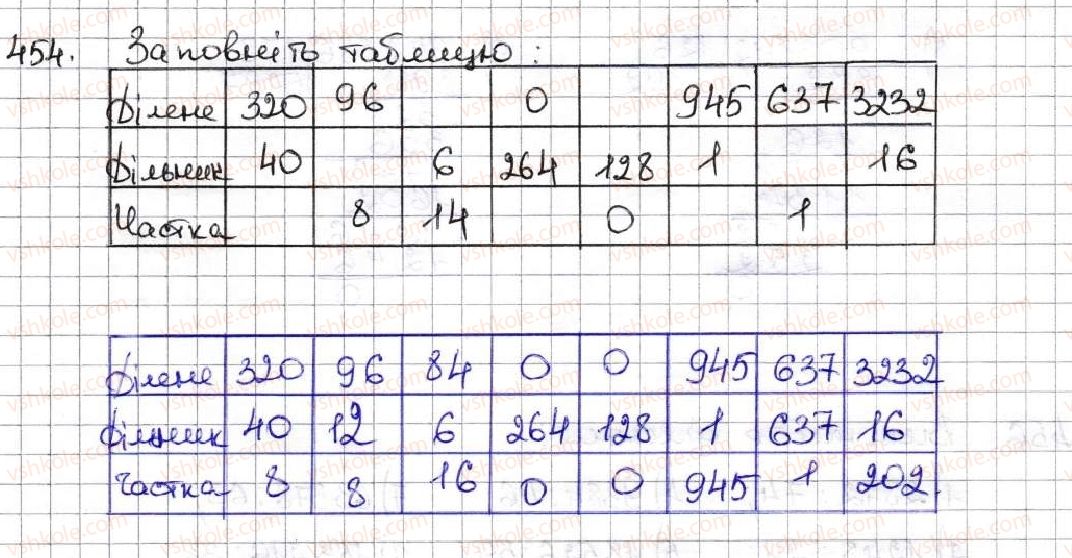 454. Заповніть таблицю:
Ділене 320 96 0 945 637 3232
Дільник 40 6 264 128 1 16
Частка 8 14 0 1
Ділене 320 96 84 0 0 945 637 3232
Дільник 40 12 6 264 128 1 637 16
Частка 8 8 16 0 0 945 1 202.